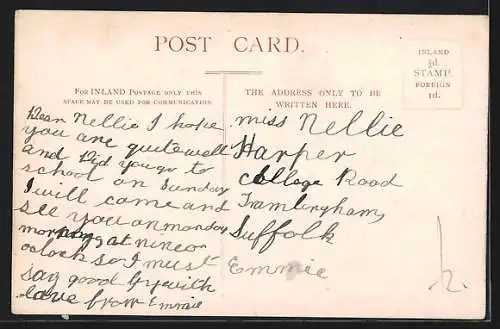 POST CARD.
INLAND
½d.
STAMP.
FOREIGN
1d.
FOR INLAND POSTAGE ONLY THIS
SPACE MAY BE USED FOR COMMUNICATION.
THE ADDRESS ONLY TO BE
WRITTEN HERE.
Dear Nellie I hope
you are quite well
and Did you go to
school on Sunday
I will come and
see you on monday
morning at nine o
oclock so I must
say good by with
love from Emmie
miss Nellie
Harper
College Road
Framlingham
Suffolk
Emmie